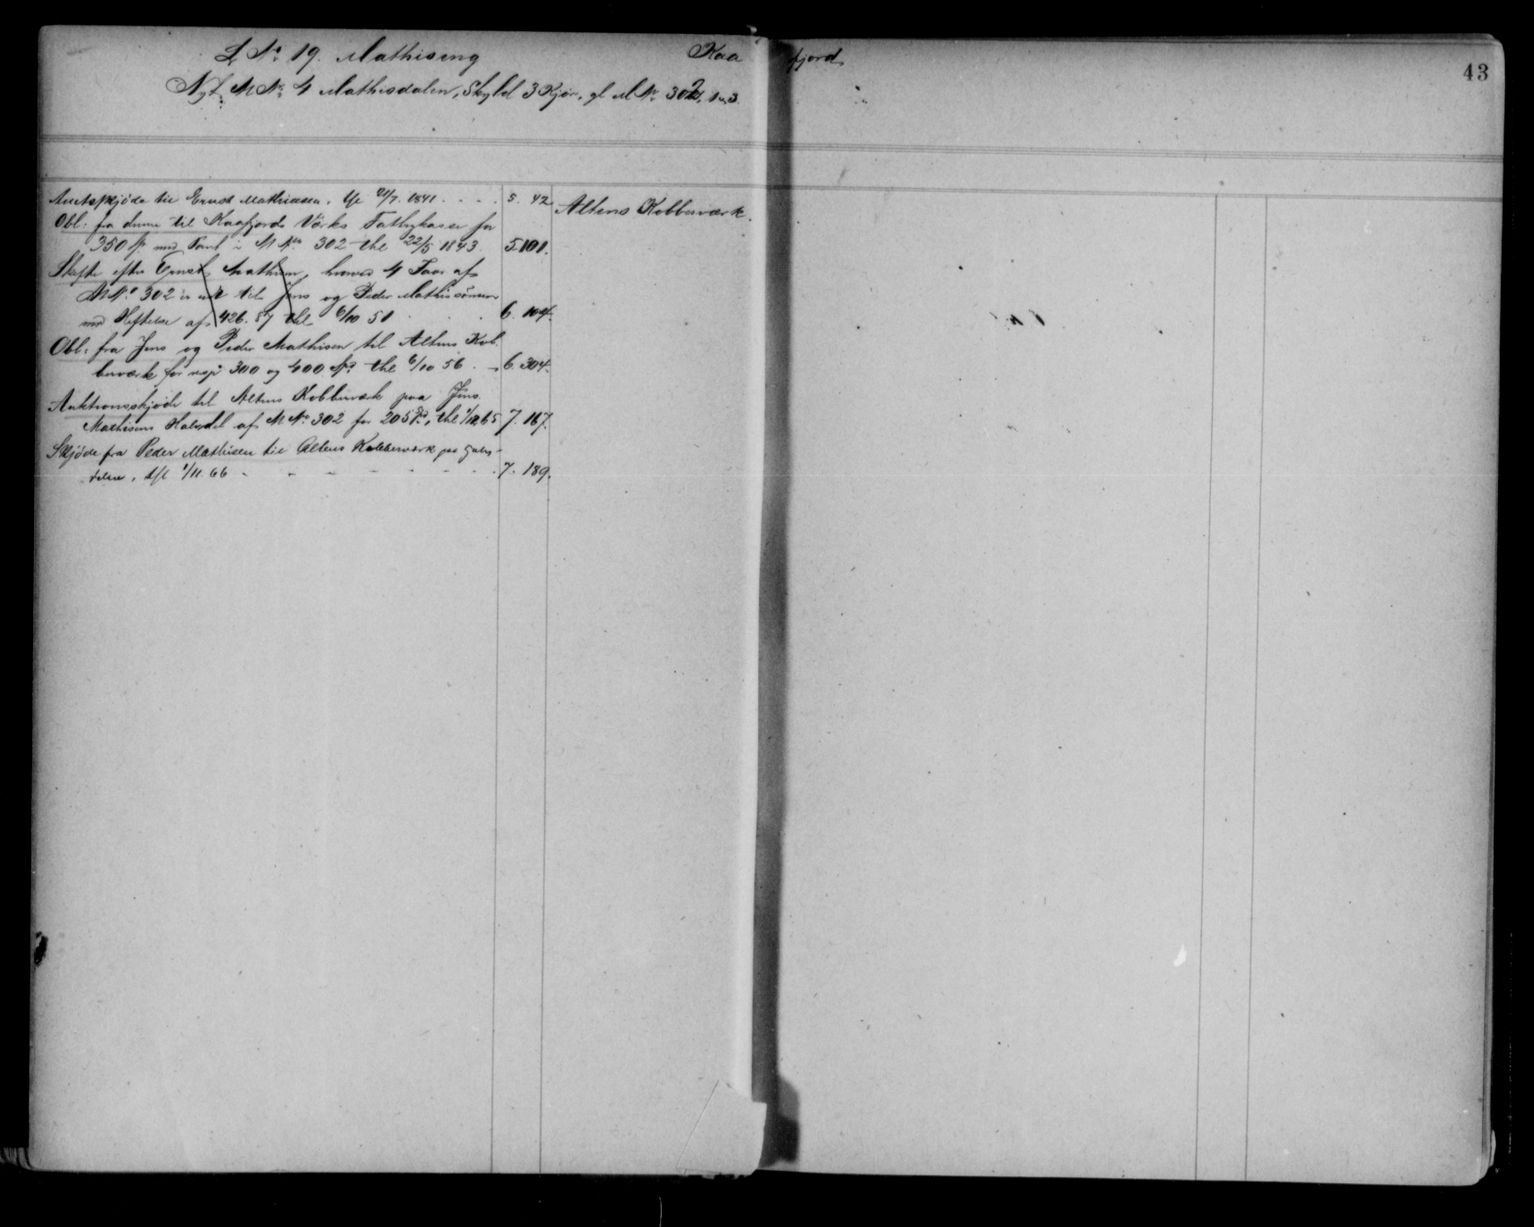 L. No 19. Mathiseng Kaafjord.
43
Nyt M No 4 Mathisdalen, Skyld 3 Kjør, gl M No 302, 1 v. 3.
Amtskjøde til Ernst Mathiesen, 21/7 1841 . . . . 5. 42
Altens Kobberværk.
Obl: fra denne til Kaafjords Værks Fattigkasse for
350 Sp med Pant i M No 302 thl 22/5 1843 5. 101.
Skifte efter Ernst Mathisen, hvorved 4 Faar af
M No 302 er til Jens og Peder Mathissönner
med Heftelse af 426. 57 thl 6/10 51 . . . 6. 104.
Obl: fra Jens og Peder Mathisen til Altens Kob
berværk for resp 300 og 400 Spd thl 6/10 56 . 6. 304.
Auktionsskjøde til Altens Kobberværk paa Jens
Mathisens Halvdel af M No 302 for 205 Spd, thl 65 7. 167.
Skjöde fra Peder Mathisen til Altens Kobberværk paa Halv-
delen, thl 1/11 66 - - - - - - - 7. 189.